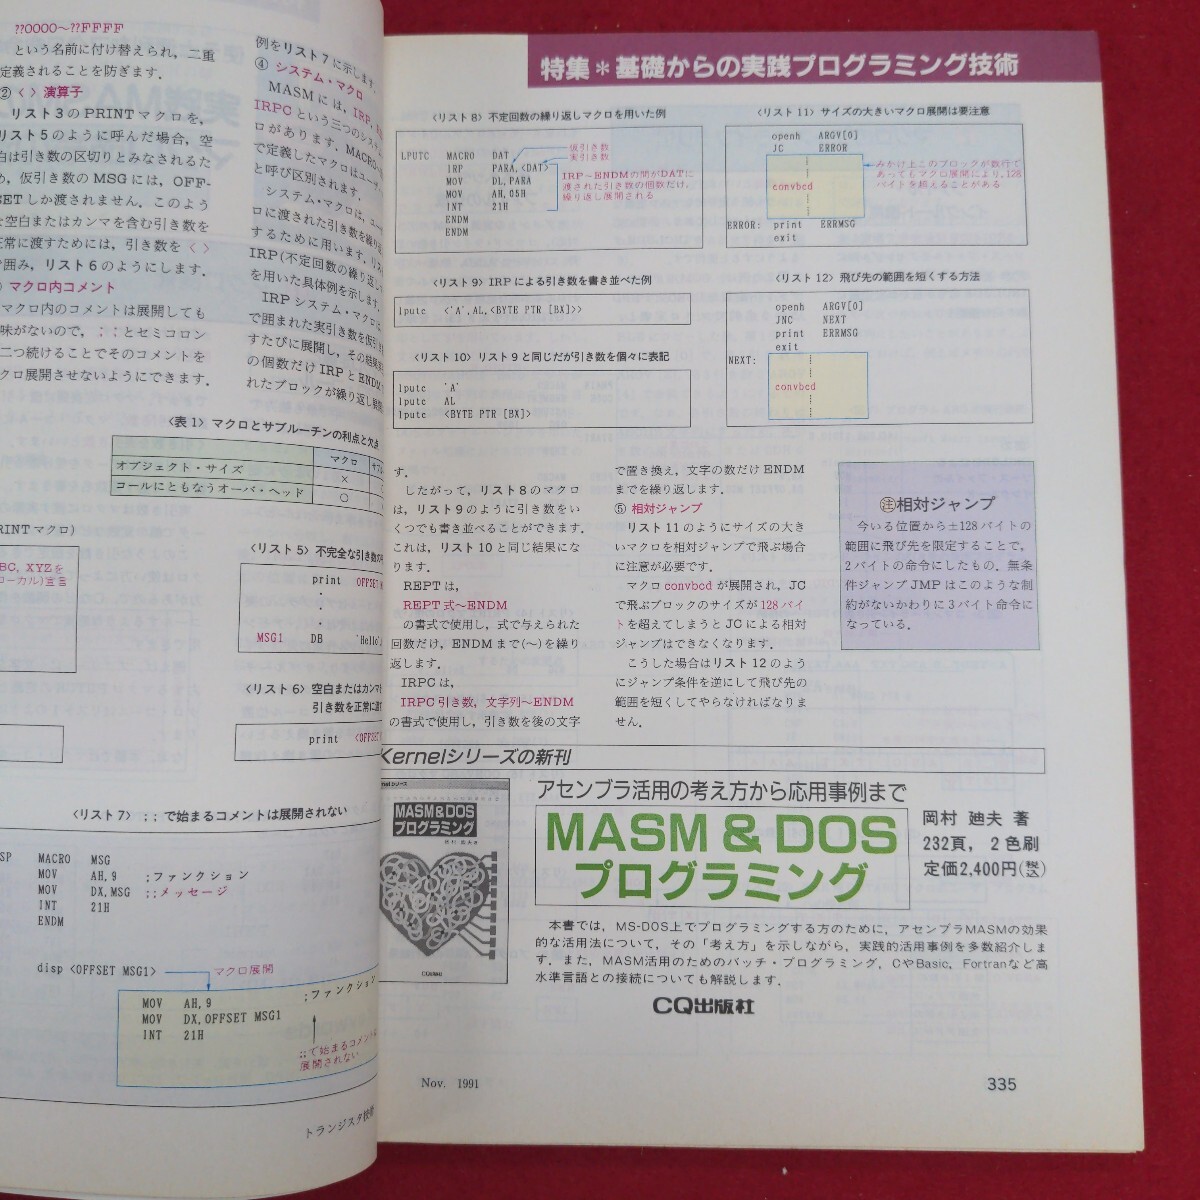 ??0000～??FFFF
という名前に付け替えられ，二重
定義されることを防ぎます．
②〈 〉演算子
リスト3のPRINTマクロを，
リスト5のように呼んだ場合，空
白は引き数の区切りとみなされるた
め，仮引き数のMSGには，OFF-
SETしか渡されません．このよう
な空白またはカンマを含む引き数を
正常に渡すためには，引き数を〈 〉
で囲み，リスト6のようにします．
マクロ内コメント
マクロ内のコメントは展開しても
意味がないので，；；とセミコロン
を二つ続けることでそのコメントを
マクロ展開させないようにできます．
例をリスト7に示します．
④ システム・マクロ
MASMには，IRP，
IRPCという三つのシステム
ロがあります．MACRO
で定義したマクロはユーザ
と呼び区別されます．
システム・マクロは，ユー
ロに渡された引き数を繰り返
するために用います．リス
IRP(不定回数の繰り返し
を用いた具体例を示します．
IRPシステム・マクロは，
で囲まれた実引き数を仮引き
すたびに展開し，その結果
の個数だけIRPとENDM
れたブロックが繰り返し展開
〈表1〉マクロとサブルーチンの利点と欠点
マクロ
オブジェクト・サイズ ×
コールにともなうオーバ・ヘッド ○
RINTマクロ)
BC, XYZを
ローカル)宣言
〈リスト5〉不完全な引き数の
print OFFSET
MSG1 DB 'Hello'
〈リスト6〉空白またはカンマ
引き数を正常に渡
print <OFFSET
〈リスト7〉；；で始まるコメントは展開されない
SP MACRO MSG
MOV AH,9 ;ファンクション
MOV DX,MSG ;;メッセージ
INT 21H
ENDM
disp <OFFSET MSG1>
マクロ展開
MOV AH,9 ;ファンクション
MOV DX,OFFSET MSG1
INT 21H
;;で始まるコメントは
展開されない
トランジスタ技術
特集＊基礎からの実践プログラミング技術
〈リスト8〉不定回数の繰り返しマクロを用いた例
LPUTC MACRO DAT
IRP PARA,<DAT>
MOV DL,PARA
MOV AH,05H
INT 21H
ENDM
ENDM
仮引き数
実引き数
IRP～ENDMの間がDATに
渡された引き数の個数だけ，
繰り返し展開される
〈リスト9〉IRPによる引き数を書き並べた例
lputc <'A',AL,<BYTE PTR [BX]>>
〈リスト10〉リスト9と同じだが引き数を個々に表記
lputc 'A'
lputc AL
lputc <BYTE PTR [BX]>
〈リスト11〉サイズの大きいマクロ展開は要注意
openh ARGV[0]
JC ERROR
convbcd
ERROR: print ERRMSG
exit
みかけ上このブロックが数行で
あってもマクロ展開により，128
バイトを超えることがある
〈リスト12〉飛び先の範囲を短くする方法
openh ARGV[0]
JNC NEXT
print ERRMSG
exit
NEXT:
convbcd
す．
したがって，リスト8のマクロ
は，リスト9のように引き数をい
くつでも書き並べることができます．
これは，リスト10と同じ結果にな
ります．
REPTは，
REPT 式～ENDM
の書式で使用し，式で与えられた
回数だけ，ENDMまで(～)を繰り
返します．
IRPCは，
IRPC 引き数，文字列～ENDM
の書式で使用し，引き数を後の文字
で置き換え，文字の数だけENDM
までを繰り返します．
⑤ 相対ジャンプ
リスト11のようにサイズの大き
いマクロを相対ジャンプで飛ぶ場合
に注意が必要です．
マクロconvbcdが展開され，JC
で飛ぶブロックのサイズが128バイ
トを超えてしまうとJCによる相対
ジャンプはできなくなります．
こうした場合はリスト12のよう
にジャンプ条件を逆にして飛び先の
範囲を短くしてやらなければなりま
せん．
㊟相対ジャンプ
今いる位置から±128バイトの
範囲に飛び先を限定することで，
2バイトの命令にしたもの．無条
件ジャンプJMPはこのような制
約がないかわりに3バイト命令に
なっている．
Kernelシリーズの新刊
MASM&DOS
プログラミング
CQ出版社
アセンブラ活用の考え方から応用事例まで
MASM & DOS
プログラミング
岡村 廸夫 著
232頁，2色刷
定価2,400円(税込)
本書では，MS-DOS上でプログラミングする方のために，アセンブラMASMの効果
的な活用法について，その「考え方」を示しながら，実践的活用事例を多数紹介しま
す．また，MASM活用のためのパッチ・プログラミング，CやBasic，Fortranなど高
水準言語との接続についても解説します．
CQ出版社
Nov. 1991
335